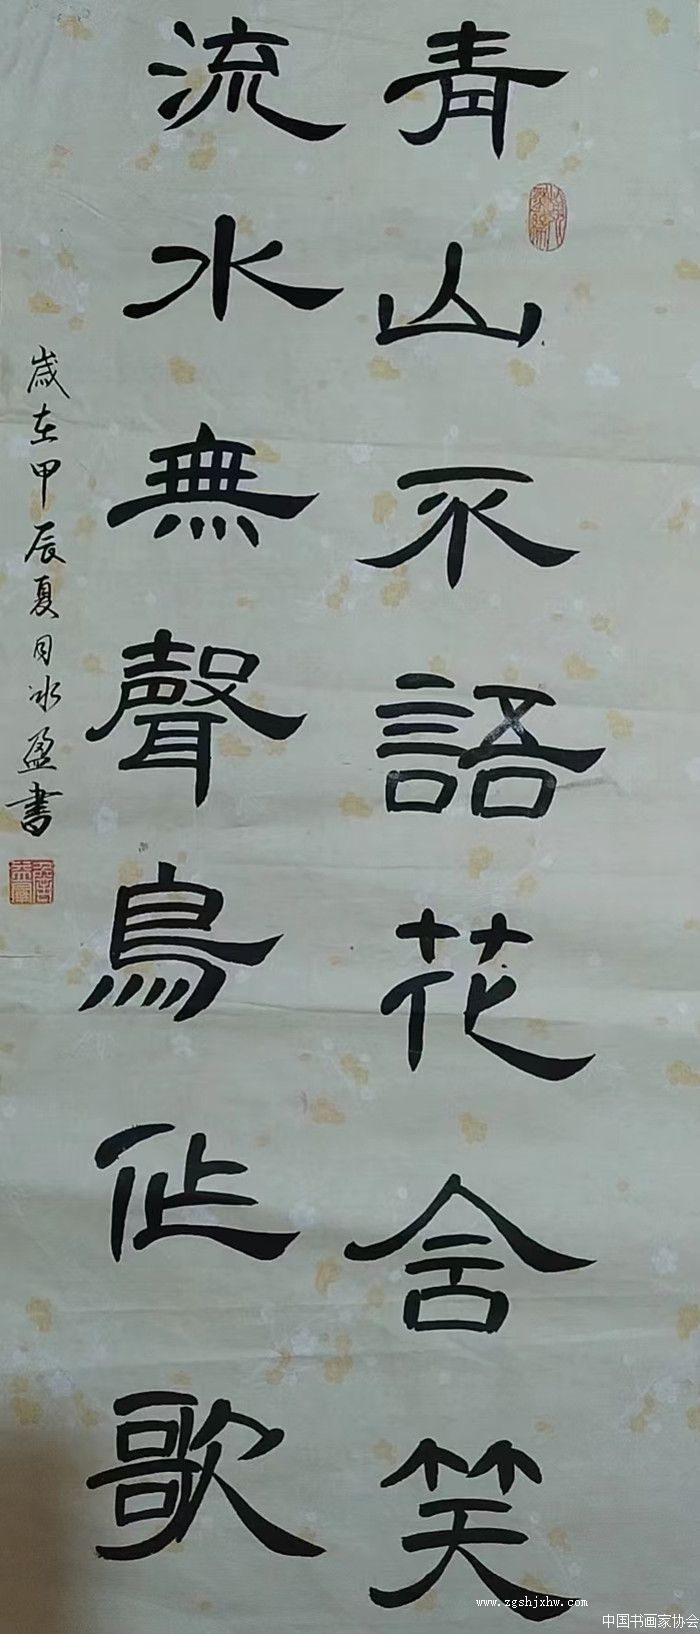 青山不語花含笑
流水無聲鳥作歌
歲在甲辰夏月冰盈書
www.zgshjxhw.com
中国书画家协会